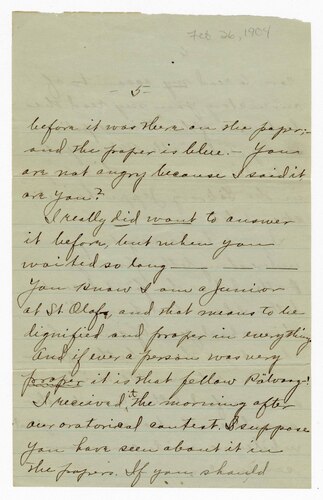 Feb 26, 1904
- 5 -
before it was there on the paper;-
and the paper is blue. - You
are not angry because I said it
are you?
I really did want to answer
it before, but when you
waited so long ——
You know I am a Junior
at St Olafs, and that means to be
dignified and proper in everything
And if ever a person was very
proper it is that fellow Rölvaag.
I received it the morning after
our oratorical contest. I suppose
you have seen about it in
the papers. If you should